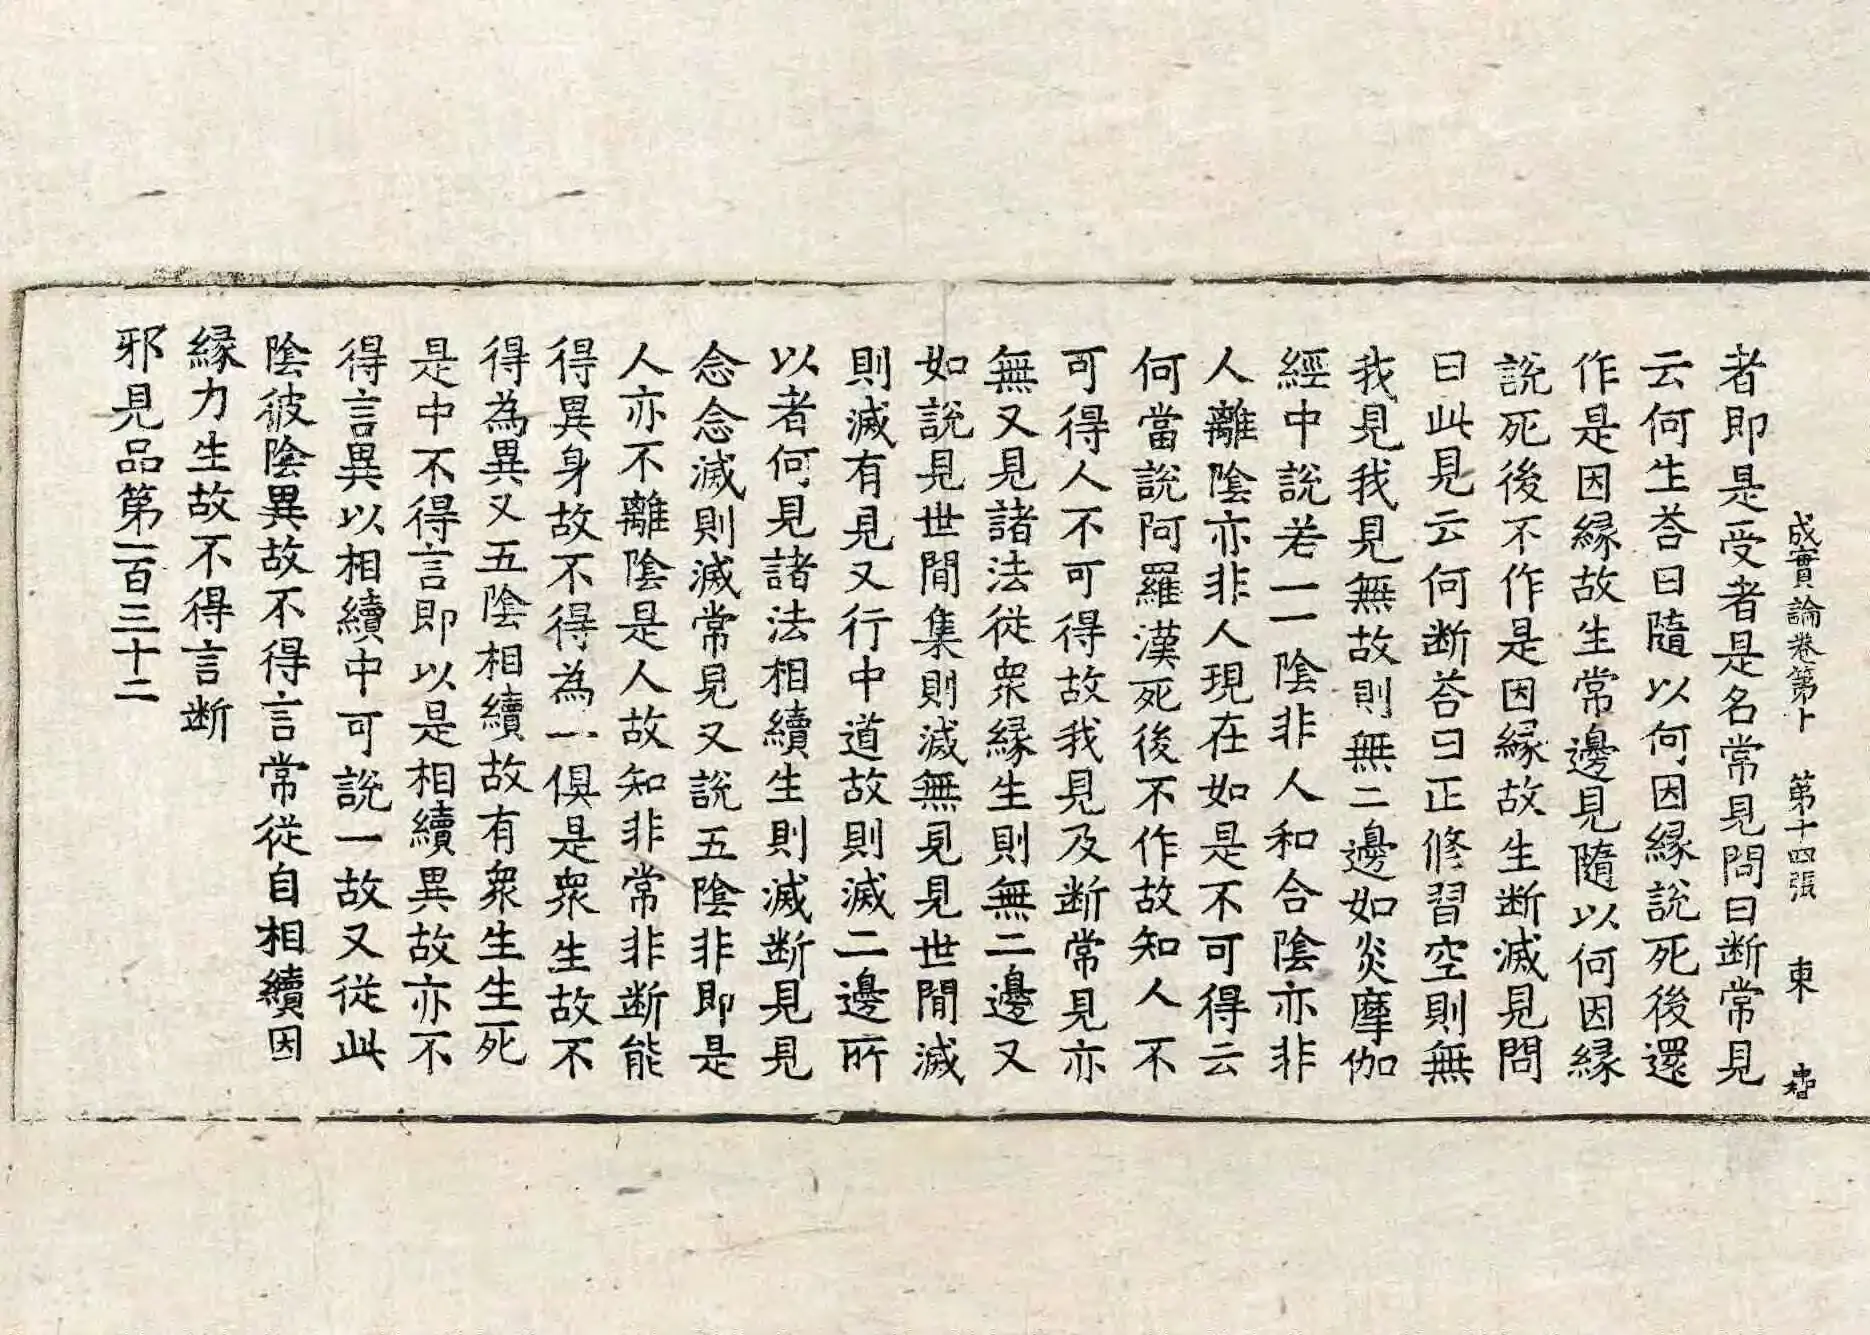 成實論卷第十 第十四張 東
者即是受者是名常見問曰断常見
云何生荅曰隨以何因縁說死後還
作是因縁故生常邊見隨以何因縁
說死後不作是因縁故生断滅見問
曰此見云何断荅曰正修習空則無
我見我見無故則無二邊如炎摩伽
經中說若一一陰非人和合陰亦非
人離陰亦非人現在如是不可得云
何當說阿羅漢死後不作故知人不
可得人不可得故我見及断常見亦
無又見諸法従衆縁生則無二邊又
如說見世間集則滅無見見世間滅
則滅有見又行中道故則滅二邊所
以者何見諸法相續生則滅断見見
念念滅則滅常見又說五陰非即是
人亦不離陰是人故知非常非断能
得異身故不得為一俱是衆生故不
得為異又五陰相續故有衆生生死
是中不得言即以是相續異故亦不
得言異以相續中可說一故又従此
陰彼陰異故不得言常従自相續因
縁力生故不得言断
邪見品第一百三十二